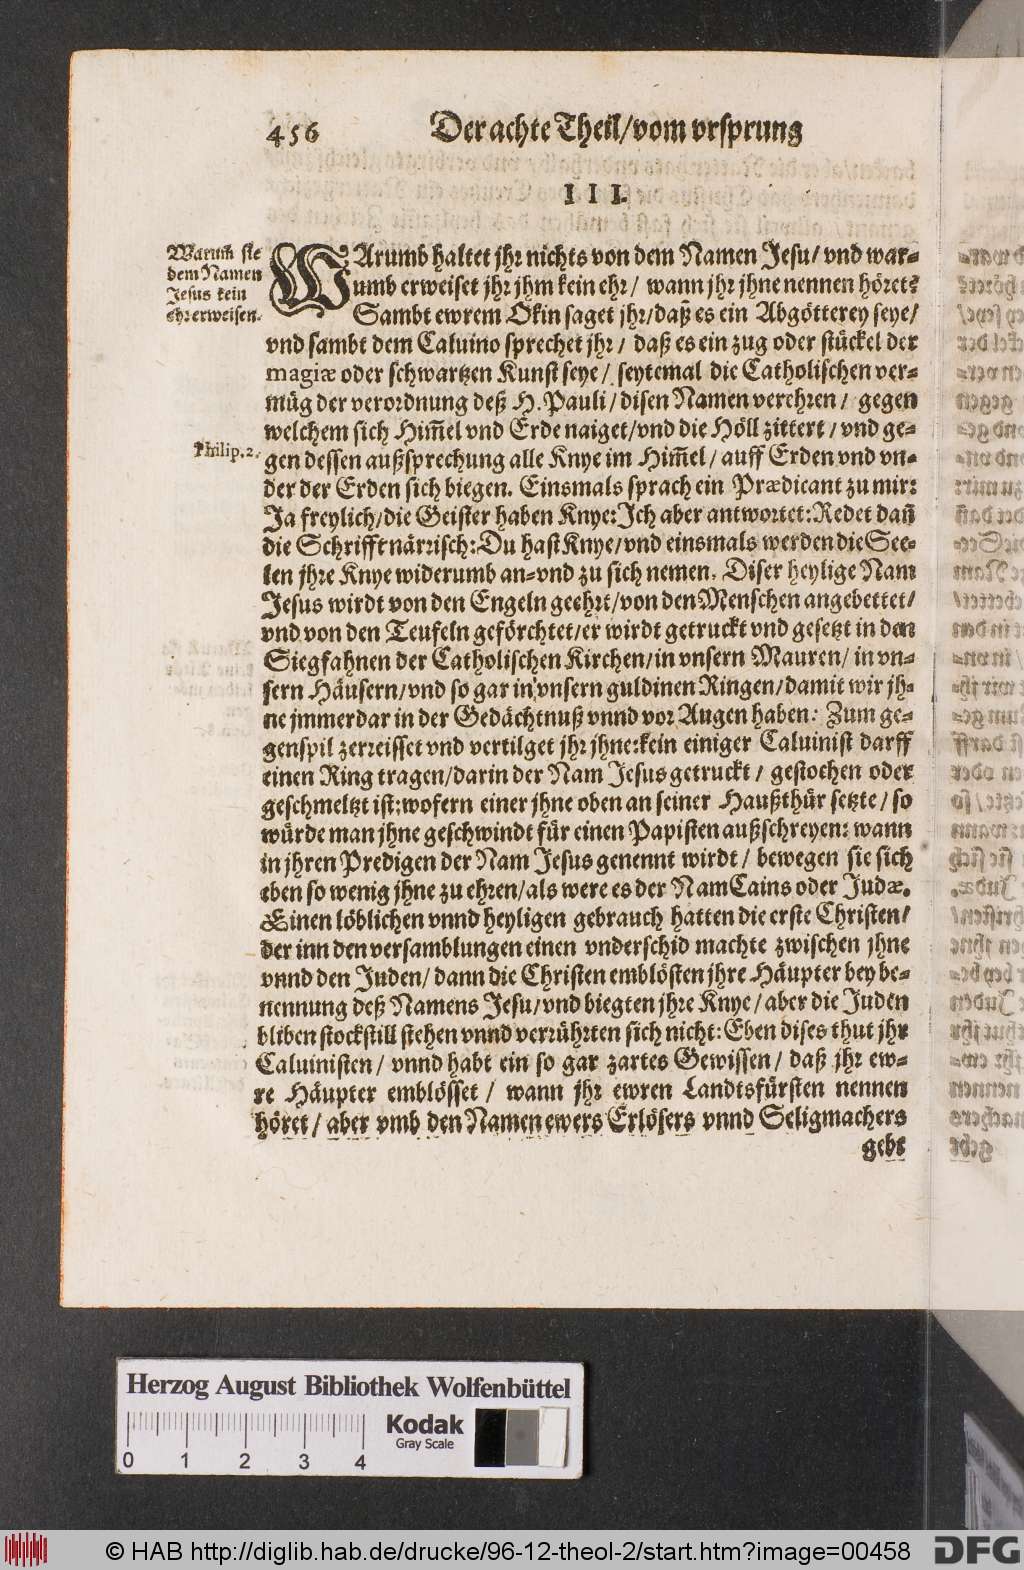 456 Der achte Theil/vom vrsprung
III.
Warum̃ sie
dem Namen
Jesus kein
ehr erweisen.
WArumb haltet jhr nichts von dem Namen Jesu/ vnd war-
umb erweiset jhr jhm kein ehr/ wann jhr jhne nennen höret?
Sambt ewrem Okin saget jhr/daß es ein Abgötterey seye/
vnd sambt dem Caluino sprechet jhr/ daß es ein zug oder stückel der
magiæ oder schwartzen Kunst seye/ seytemal die Catholischen ver-
müg der verordnung deß H. Pauli/ disen Namen verehren/ gegen
welchem sich Him̃el vnd Erde naiget/vnd die Höll zittert/ vnd ge-
Philip. 2.
gen dessen außsprechung alle Knye im Him̃el/ auff Erden vnd vn-
der der Erden sich biegen. Einsmals sprach ein Prædicant zu mir:
Ja freylich/die Geister haben Knye: Jch aber antwortet: Redet dañ
die Schrifft närrisch: Du hast Knye/vnd einsmals werden die See-
len jhre Knye widerumb an-vnd zu sich nemen. Diser heylige Nam
Jesus wirdt von den Engeln geehrt/von den Menschen angebettet/
vnd von den Teufeln geförchtet/er wirdt getruckt vnd gesetzt in den
Siegfahnen der Catholischen Kirchen/in vnsern Mauren/ in vn-
sern Häusern/vnd so gar in vnsern guldinen Ringen/damit wir jh-
ne jmmerdar in der Gedächtnuß vnnd vor Augen haben: Zum ge-
genspil zerreisset vnd vertilget jhr jhne:kein einiger Caluinist darff
einen Ring tragen/darin der Nam Jesus getruckt/ gestochen oder
geschmeltzt ist:wofern einer jhne oben an seiner Haußthür setzte/ so
würde man jhne geschwindt für einen Papisten außschreyen: wann
in jhren Predigen der Nam Jesus genennt wirdt/ bewegen sie sich
eben so wenig jhne zu ehren/als were es der Nam Cains oder Judæ.
Einen löblichen vnnd heyligen gebrauch hatten die erste Christen/
der inn den versamblungen einen vnderschid machte zwischen jhne
vnnd den Juden/ dann die Christen emblösten jhre Häupter bey be-
nennung deß Namens Jesu/vnd biegten jhre Knye/ aber die Juden
bliben stockstill stehen vnnd verrührten sich nicht: Eben dises thut jhr
Caluinisten/ vnnd habt ein so gar zartes Gewissen/ daß jhr ew-
re Häupter emblösset/ wann jhr ewren Landtsfürsten nennen
höret/ aber vmb den Namen ewers Erlösers vnnd Seligmachers
gebt
Herzog August Bibliothek Wolfenbüttel
0 1 2 3 4
Kodak
Gray Scale
© HAB http://diglib.hab.de/drucke/96-12-theol-2/start.htm?image=00458
DFG